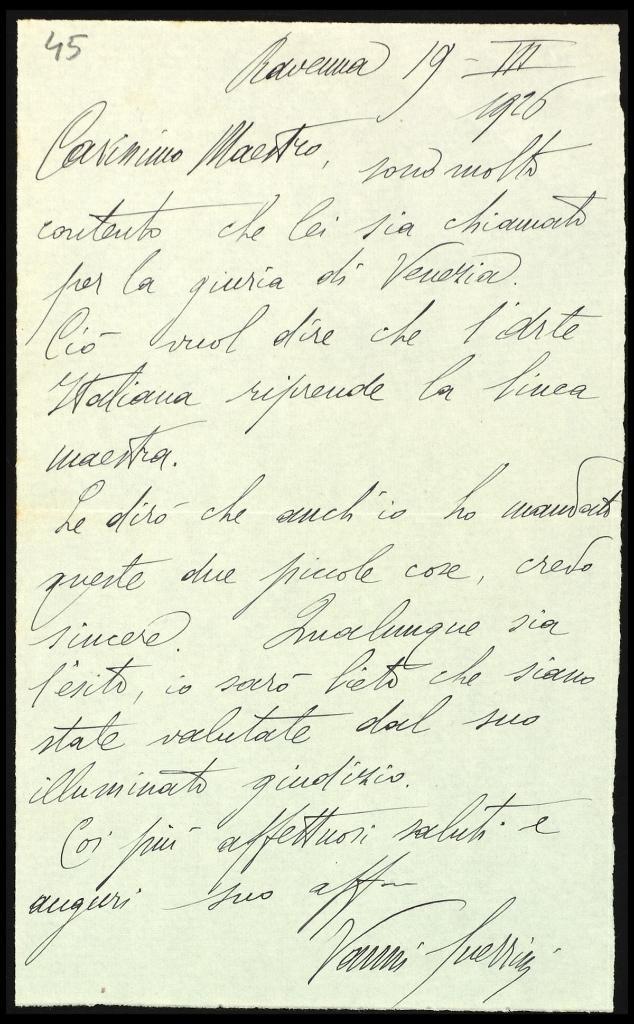 45
Ravenna 19 - III
1926
Carissimo Maestro, sono molto
contento che lei sia chiamato
per la giuria di Venezia.
Ciò vuol dire che l'arte
Italiana riprende la linea
maestra.
Le dirò che anch'io ho mandato
queste due piccole cose, credo
sincere. Qualunque sia
l'esito, io sarò lieto che siano
state valutate dal suo
illuminato giudizio.
Coi più affettuosi saluti e
auguri suo aff
Vanni Guerrini